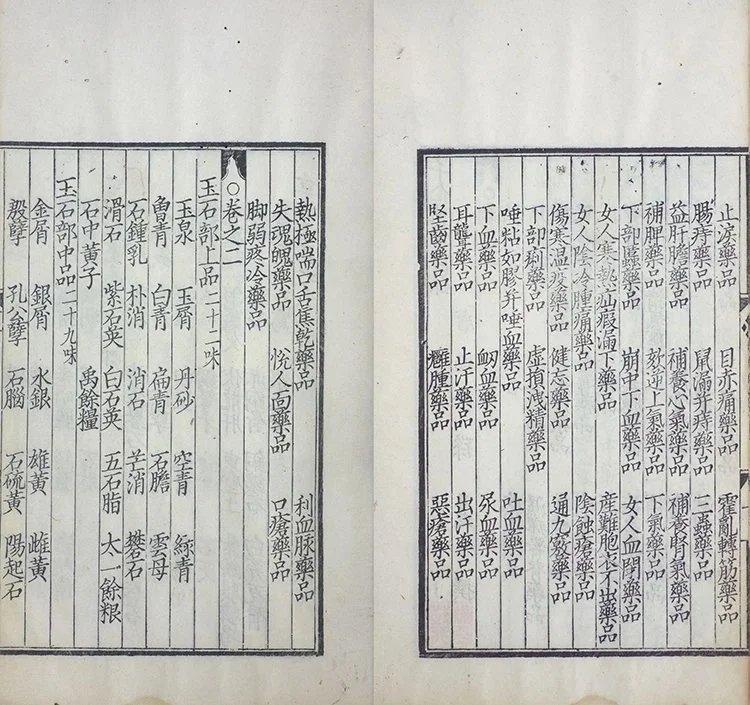 止淚藥品 目赤痛藥品 霍亂轉筋藥品
腸痔藥品 鼠漏并痔藥品 三蟲藥品
益肝膽藥品 補養心氣藥品 補養腎氣藥品
補脾藥品 欬逆上氣藥品 下氣藥品
下部䘌藥品 崩中下血藥品 女人血閉藥品
女人寒熱疝瘕漏下藥品 產難胞衣不出藥品
女人陰冷腫痛藥品 陰蝕瘡藥品
傷寒溫疫藥品 健忘藥品 通九竅藥品
下部痢藥品 虛損洩精藥品
唾粘如膠并唾血藥品 吐血藥品
下血藥品 衂血藥品 尿血藥品
耳聾藥品 止汗藥品 出汗藥品
堅齒藥品 癰腫藥品 惡瘡藥品
熱極喘口舌焦乾藥品 利血脉藥品
失魂魄藥品 悅人面藥品 口瘡藥品
脚弱疼冷藥品
○卷之二
玉石部上品二十二味
玉泉 玉屑 丹砂 空青 綠青
曾青 白青 扁青 石膽 雲母
石鍾乳 朴消 消石 芒消 礬石
滑石 紫石英 白石英 五石脂 太一餘粮
石中黃子 禹餘糧
玉石部中品二十九味
金屑 銀屑 水銀 雄黃 雌黃
殷孽 孔公孽 石腦 石硫黃 陽起石